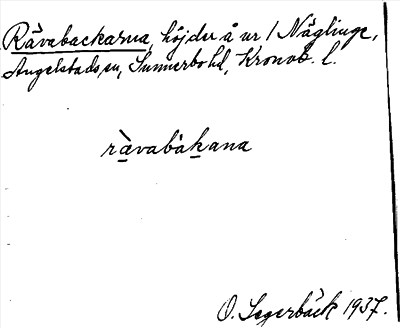 Rävabackarna, höjder å nr 1 Näglinge,
Angelstads sn, Sunnerbo hd, Kronob. l.
rävabàkana
O. Segerbäck 1937.